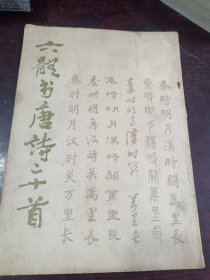 六體书唐詩三十首
秦時明月漢時關萬里長
秦時明月漢時關萬里長
秦時明月漢時關萬里長
秦時明月漢時關萬里長
秦时明月汉时关万里长